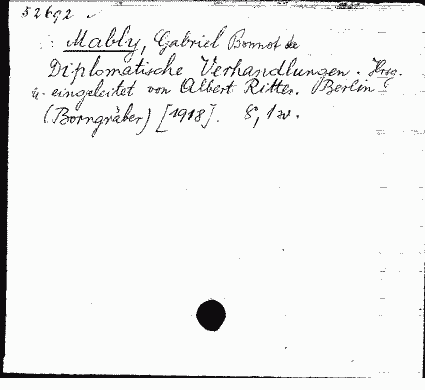 52692
Mably, Gabriel Bonnot de
Diplomatische Verhandlungen. Hrsg.
u. eingeleitet von Albert Ritter. Berlin
(Borngräber) [1918]. 8,